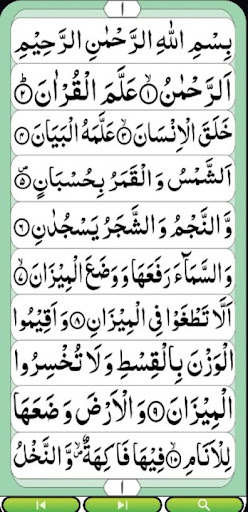 ١
بِسْمِ اللّٰهِ الرَّحْمٰنِ الرَّحِيْمِ
اَلرَّحْمٰنُ ۙ﴿١﴾ عَلَّمَ الْقُرْاٰنَ ؕ﴿٢﴾
خَلَقَ الْاِنْسَانَ ۙ﴿٣﴾ عَلَّمَهُ الْبَيَانَ ﴿٤﴾
اَلشَّمْسُ وَ الْقَمَرُ بِحُسْبَانٍ ۪﴿٥﴾
وَّ النَّجْمُ وَ الشَّجَرُ يَسْجُدٰنِ ﴿٦﴾
وَ السَّمَآءَ رَفَعَهَا وَ وَضَعَ الْمِيْزَانَ ۙ﴿٧﴾
اَلَّا تَطْغَوْا فِي الْمِيْزَانِ ﴿٨﴾ وَ اَقِيْمُوا
الْوَزْنَ بِالْقِسْطِ وَ لَا تُخْسِرُوا
الْمِيْزَانَ ﴿٩﴾ وَ الْاَرْضَ وَضَعَهَا
لِلْاَنَامِ ۙ﴿١٠﴾ فِيْهَا فَاكِهَةٌ ۪ۙ وَّ النَّخْلُ
١